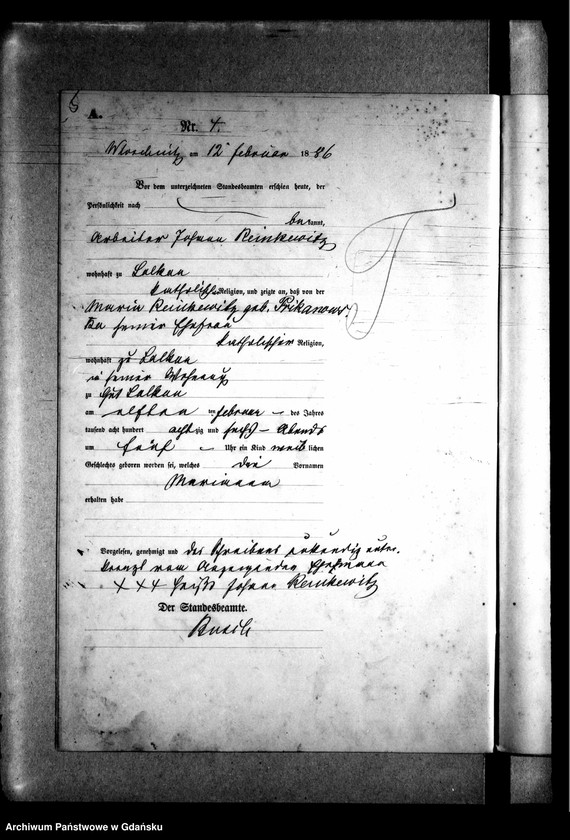 A.
Nr. 4.
am 12 Februar 1886
Vor dem unterzeichneten Standesbeamten erschien heute, der
Persönlichkeit nach
be kannt,
Arbeiter Johann Reinkewitz
wohnhaft zu Lalkau
katholischer Religion, und zeigte an, daß von der
Maria Reinkewitz geb.
ka seiner Ehefrau
katholischer Religion,
wohnhaft zu Lalkau
in seiner Wohnung
zu Gut Lalkau
am elften ten Februar – des Jahres
tausend acht hundert acht zig und sechs – Abends
um fünf – Uhr ein Kind weib lichen
Geschlechts geboren worden sei, welches die Vornamen
Marianna
erhalten habe
Vorgelesen, genehmigt und des Schreibens unkundig unter-
kreuzt vom Anzeigenden Ehemann
+++ heißt Johann Reinkewitz
Der Standesbeamte.
Archiwum Państwowe w Gdańsku